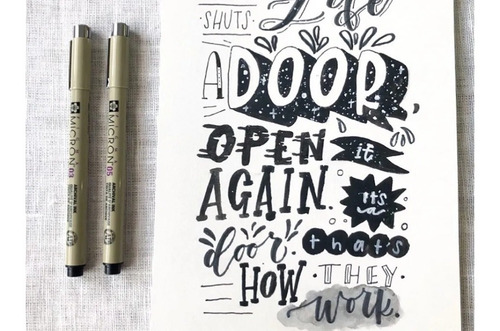 Life
SHUTS
A DOOR,
OPEN it
AGAIN. it's a
door. thats
HOW THEY
work.
MICRON 03
MICRON 05
ARCHIVAL INK
ARCHIVAL INK